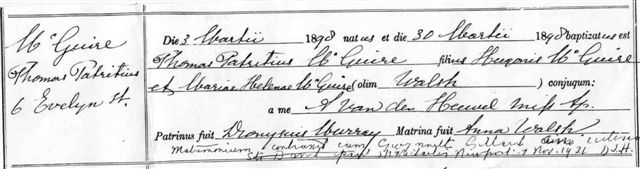 McGuire
Thomas Patritius
6 Evelyn St.
Die 3 Martii 1898 natus et die 30 Martii 1898 baptizatus est
Thomas Patritius McGuire filius Hugonis McGuire
et Mariae Helenae McGuire (olim Walsh) conjugum:
a me A Van den Heuvel miss. ap.
Patrinus fuit Dionysius Murray Matrina fuit Anna Walsh
Matrimonium contraxit cum Gwynneth
Newport 7 Nov. 1931 D.J.H.